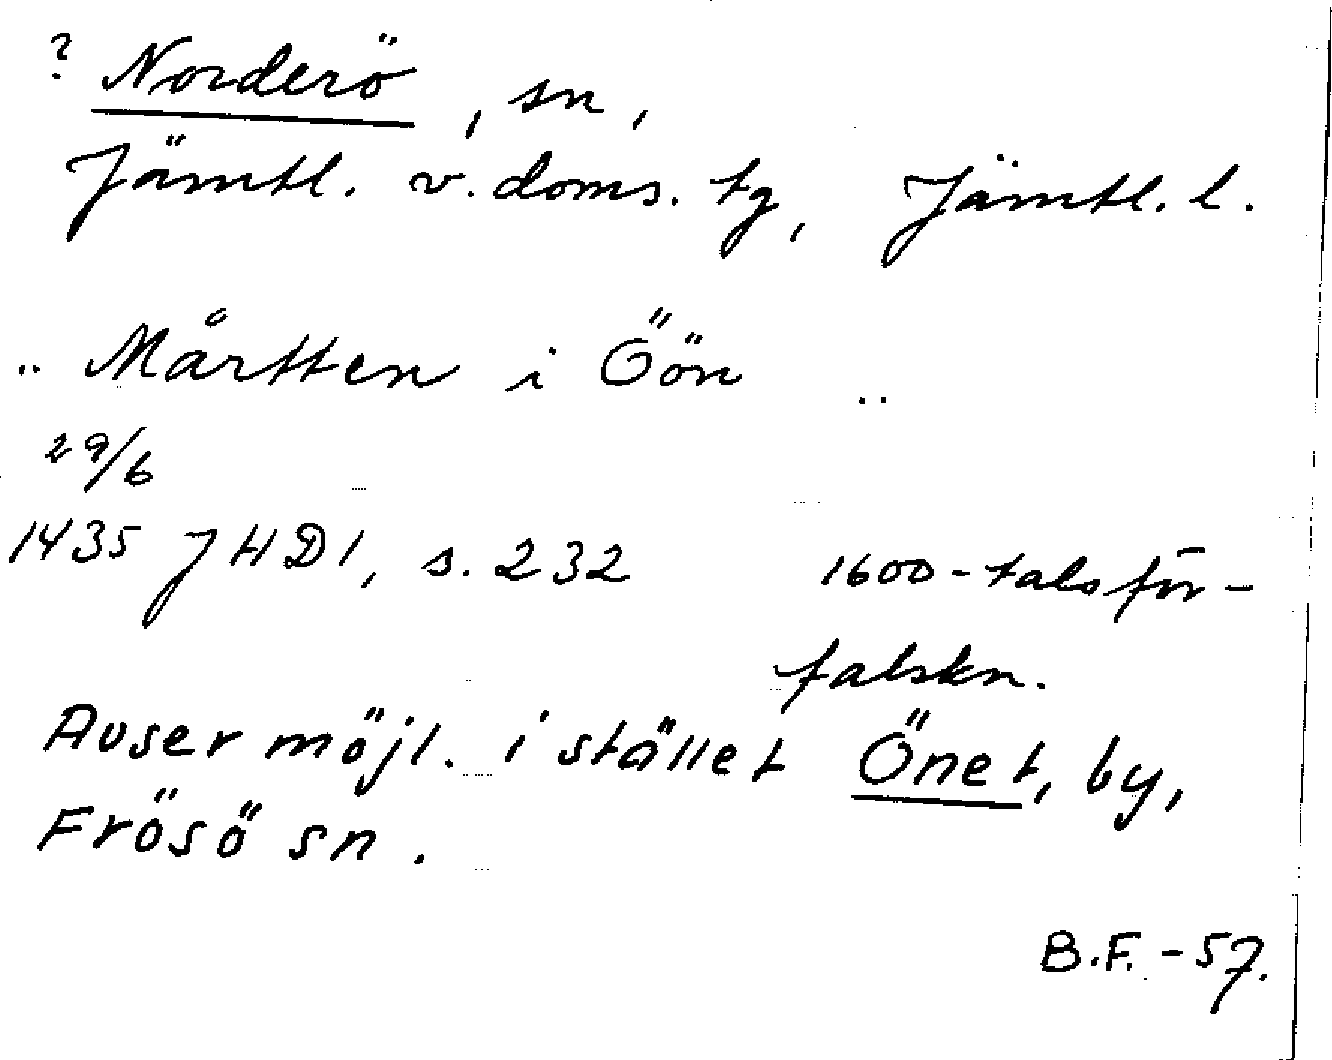 ? Norderö, sn,
Jämtl. v. doms. tg, Jämtl. l.
.. Mårtten i Öön ..
29/6
1435 JHD1, s. 232 1600-talsför-
falskn.
Avser möjl. i stället Önet, by,
Frösö sn.
B.F. -57.